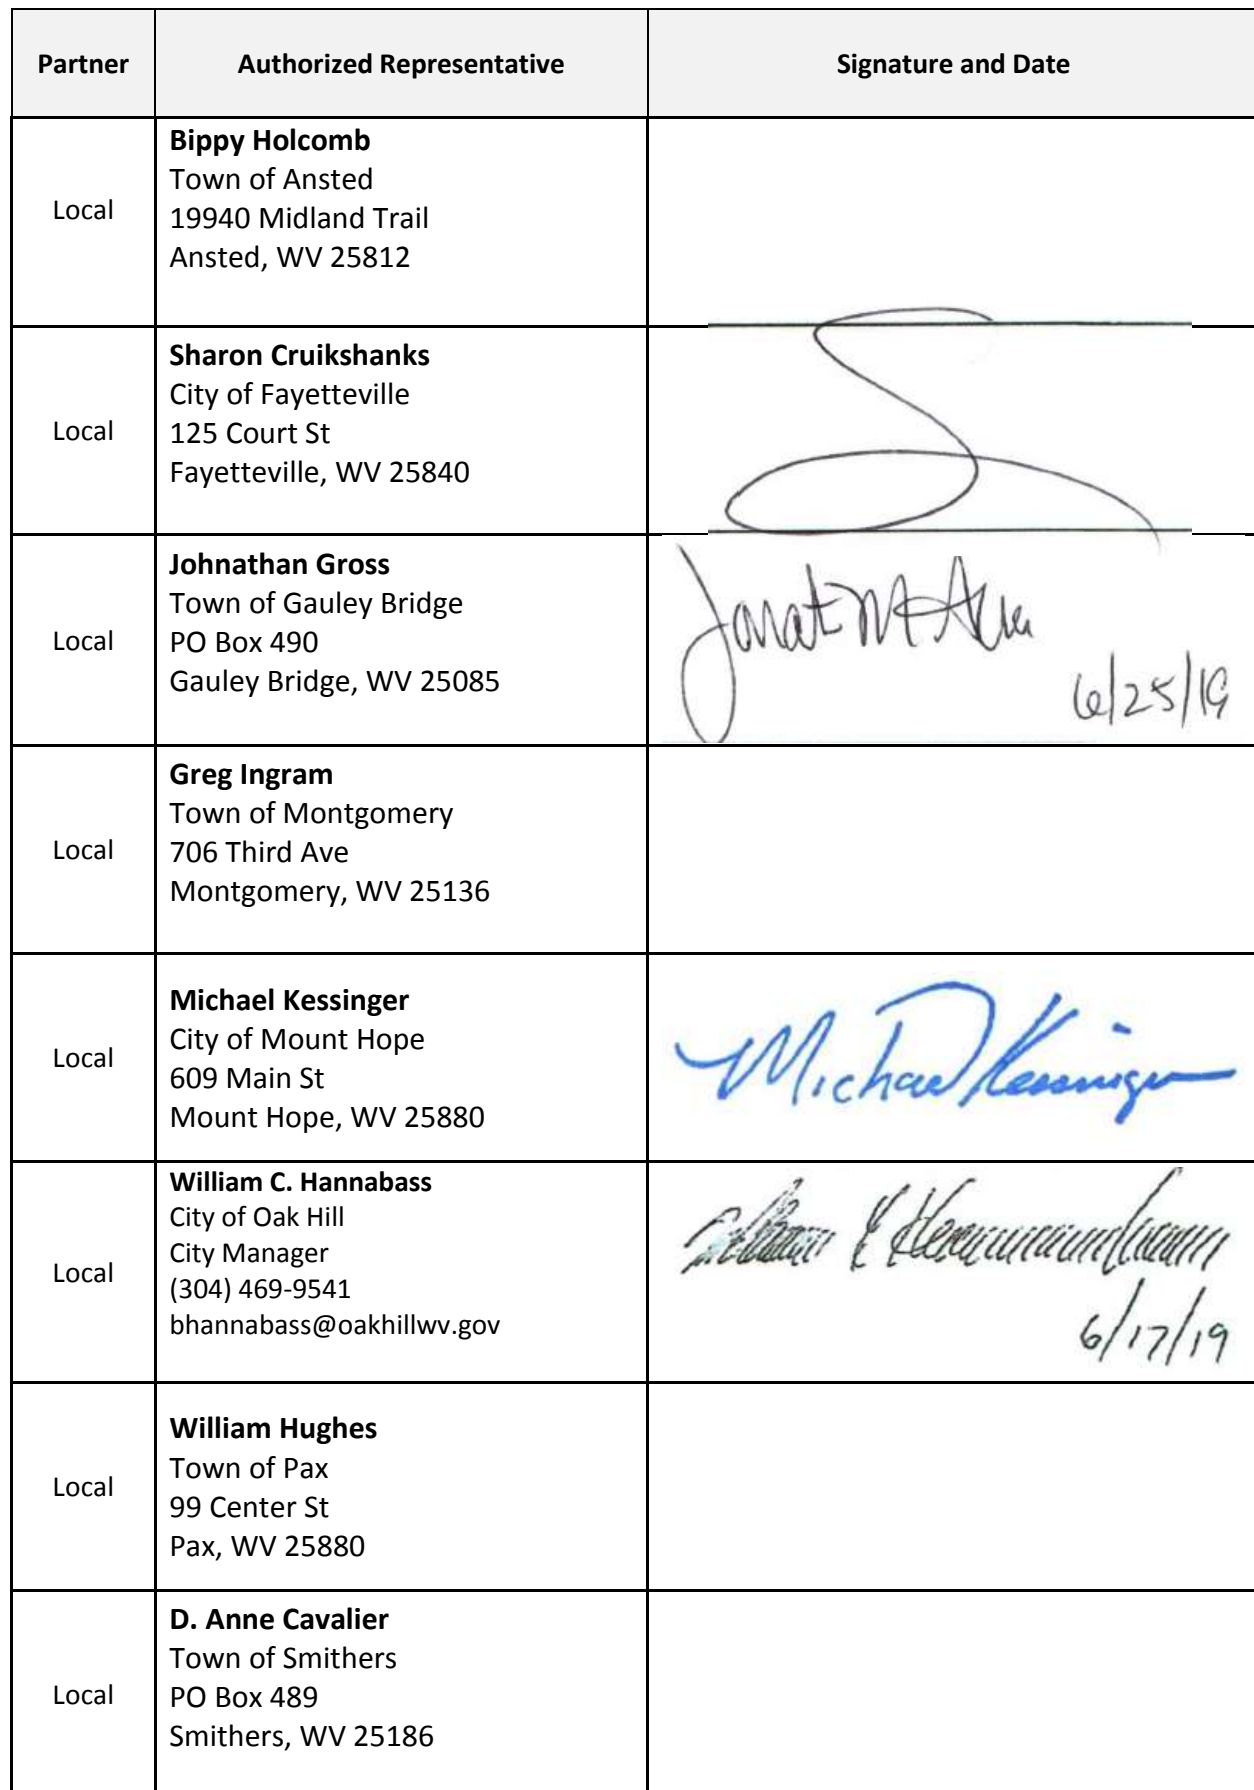 Partner Authorized Representative Signature and Date
Local
Bippy Holcomb
Town of Ansted
19940 Midland Trail
Ansted, WV 25812
Local
Sharon Cruikshanks
City of Fayetteville
125 Court St
Fayetteville, WV 25840
Local
Johnathan Gross
Town of Gauley Bridge
PO Box 490
Gauley Bridge, WV 25085
6/25/19
Local
Greg Ingram
Town of Montgomery
706 Third Ave
Montgomery, WV 25136
Local
Michael Kessinger
City of Mount Hope
609 Main St
Mount Hope, WV 25880
Michael Kessinger
Local
William C. Hannabass
City of Oak Hill
City Manager
(304) 469-9541
bhannabass@oakhillwv.gov
6/17/19
Local
William Hughes
Town of Pax
99 Center St
Pax, WV 25880
Local
D. Anne Cavalier
Town of Smithers
PO Box 489
Smithers, WV 25186